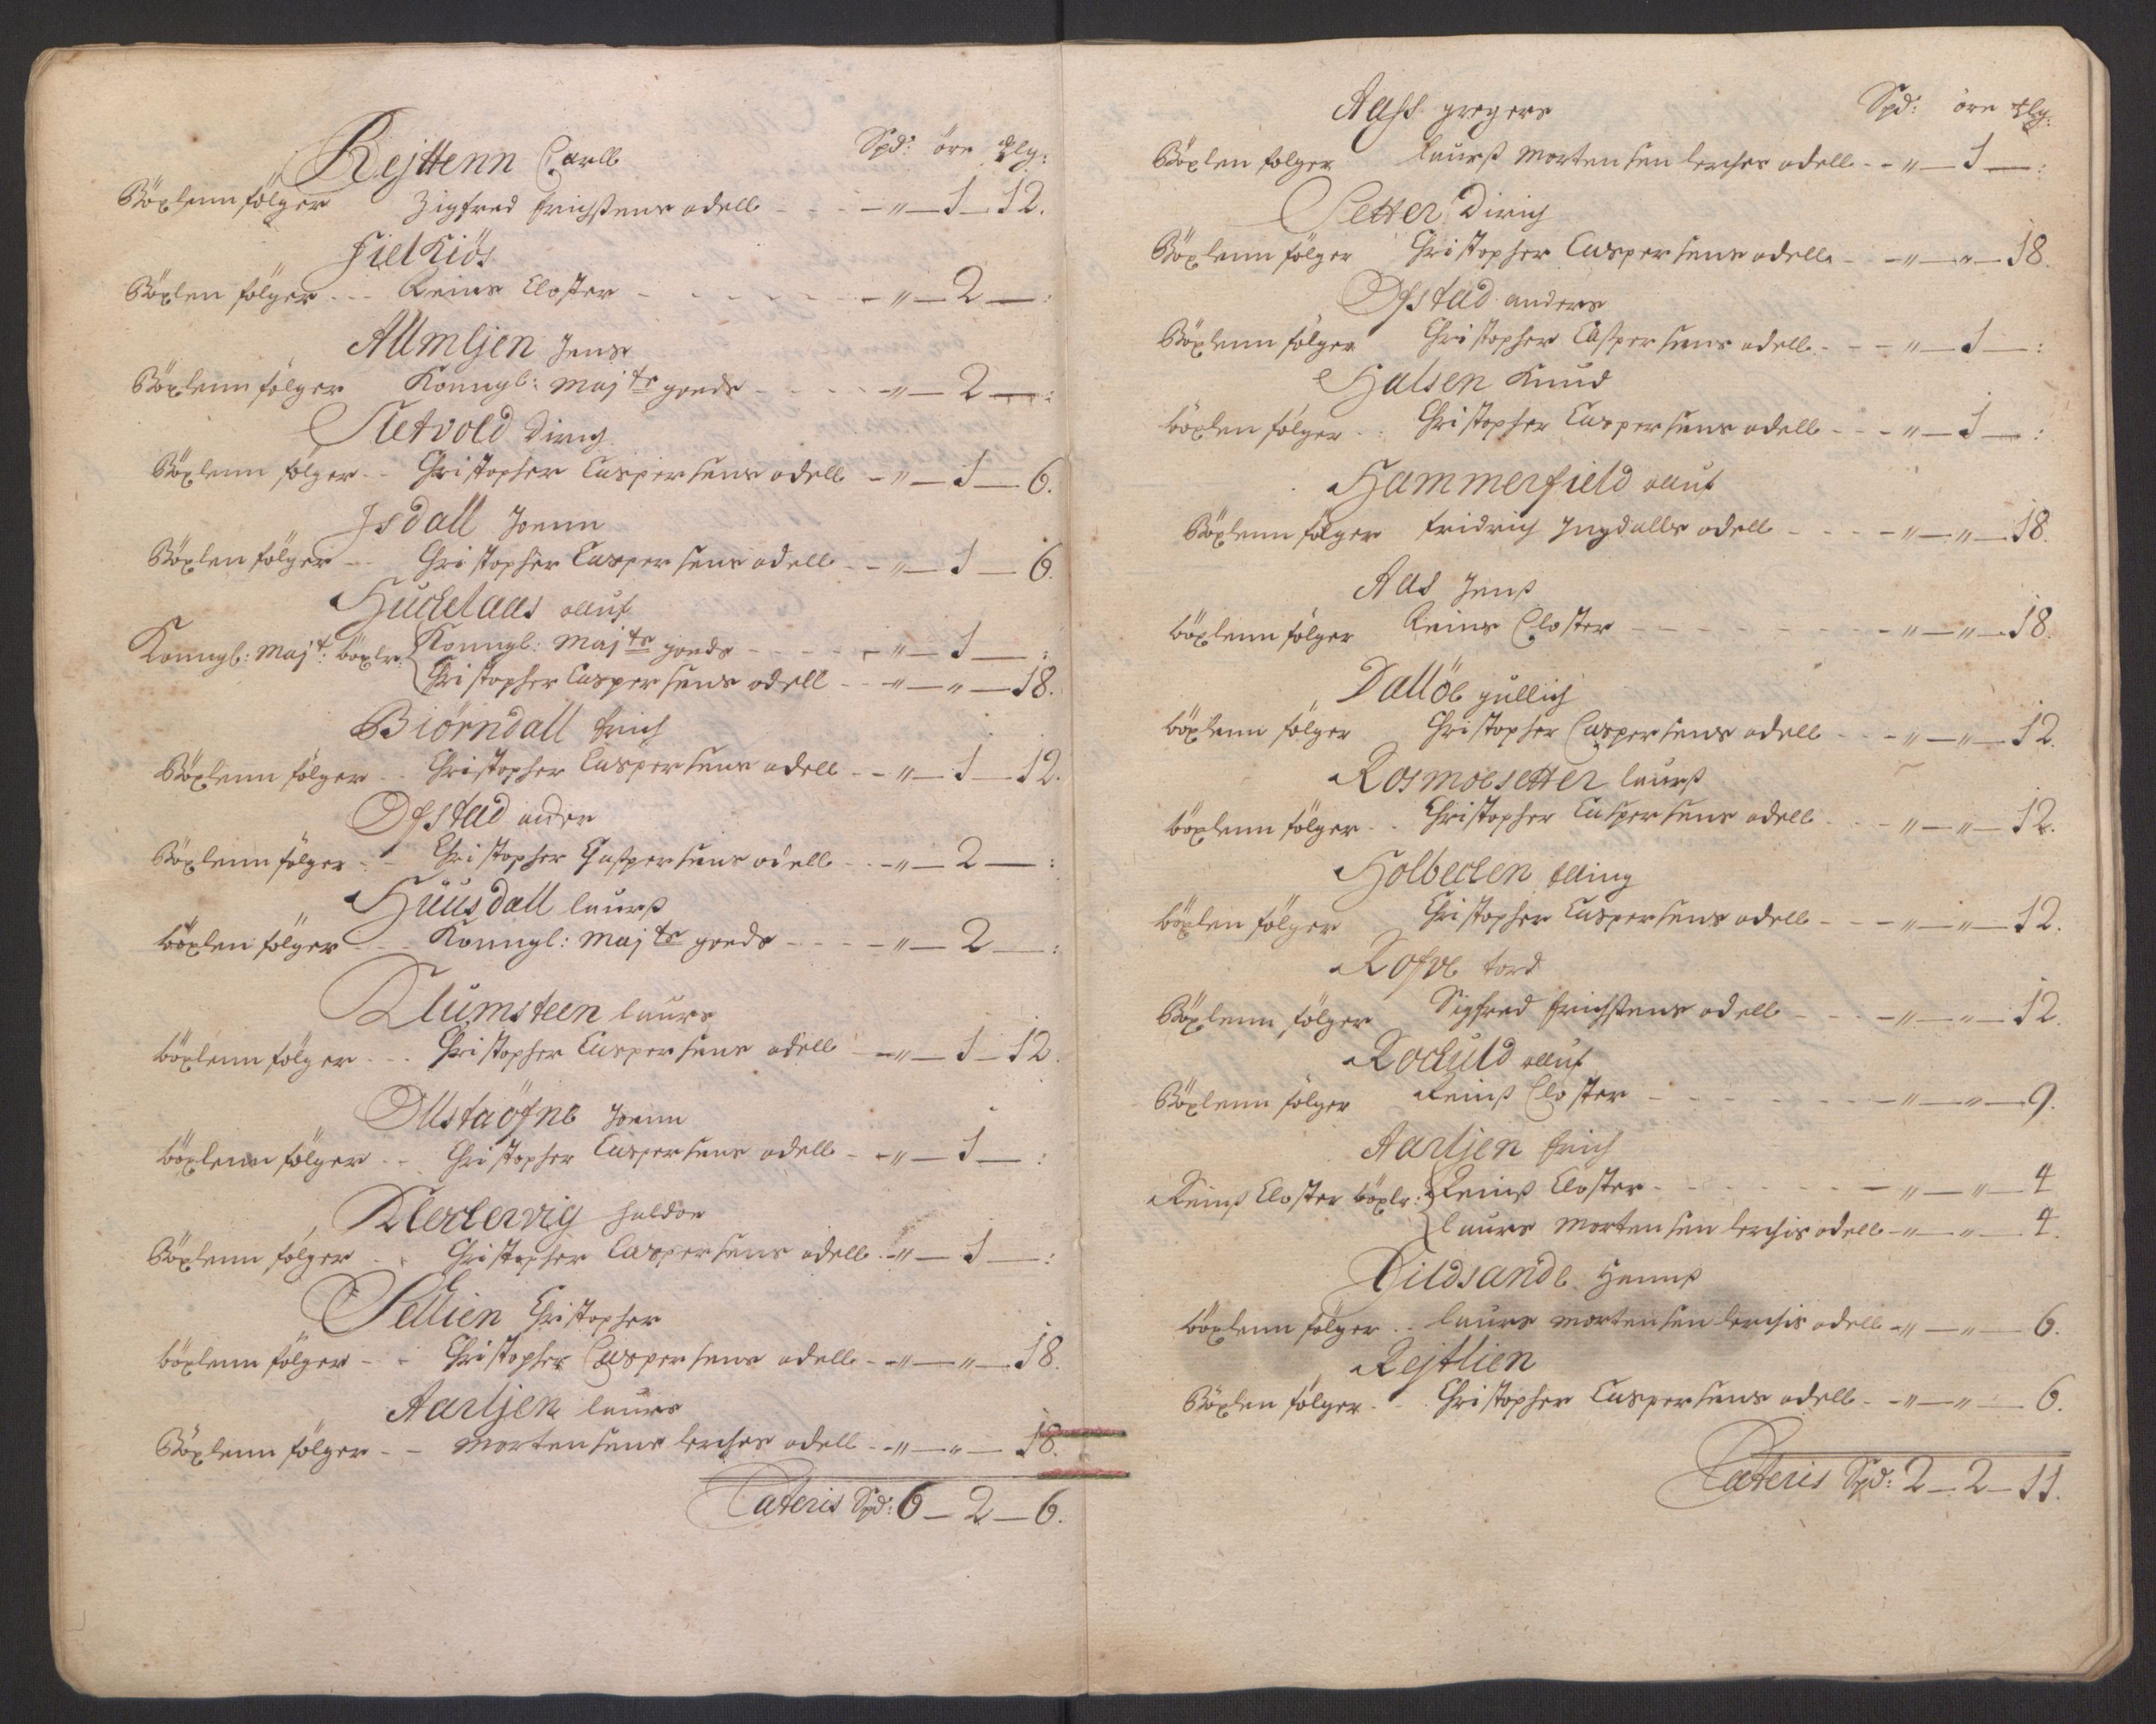 Rejttenn Carll Spd: öre Mlg:
Böxlenn fölger Zigfred Erichsens odell - - - " — 1 — 12.
Fielkiös
Böxlen fölger - - Reins Closter - - - - - " — 2 — :
Allmljen Jens
Böxlenn fölger Konngl: Majts goeds - - - - " — 2 — :
Sletvold Dirich
Böxlenn fölger - - Christopher Caspersens odell - " — 1 — 6.
Jsdall Joenn
Böxlen fölger - - Christopher Caspersens odell - - " — 1 — 6.
Huchelaas olluf
Konngl: Majt: böxlr: Konngl: Majts goeds - - - - " — 1 — :
Christopher Caspersens odell - - " — " — 18.
Biörndall Erich
Böxlenn fölger - - Christopher Caspersens odell - - " — 1 — 12.
Ofstad
Böxlenn fölger - - Christopher Caspersens odell - - " — 2 — :
Huusdall laurs
böxlen fölger - - Konngl: Majts goeds - - - - " — 2 — :
Klumsteen laurs
böxlenn fölger - - - Christopher Caspersens odell - " — 1 — 12.
Ollstaöfne Joenn
böxlenn fölger - - Christopher Caspersens odell - - " — 1 — :
Klechervig haldor
Böxlenn fölger - - Christopher Caspersens odell - " — 1 — :
Sellien Christopher
böxlenn fölger - - Christopher Caspersens odell - - " — " — 18.
Aarljen laurs
Böxlenn fölger - - Mortensens lerches odell - - " — " — 18.
Lateris Spd: 6 — 2 — 6.
Aass gregers Spd: öre Mlg:
Böxlen folger laurs Mortensen lerches odell - - " — 1 — :
Setter Dirich
Böxlenn fölger Christopher Caspersens odell - - " — " — 18.
Ofstad anders
Böxlenn fölger Christopher Caspersens odell - - - " — 1 — :
Halsen Knud
böxlen fölger - : Christopher Caspersens odell - - - " — 1 — :
Hammerfield olluf
Böxlenn fölger Fridrich Jngdalls odell - - - - " — " — 18.
Aas Jens
böxlenn fölger Reins Closter - - - - - - " — " — 18.
Dallöe gullich
böxlenn fölger Christopher Caspersens odell - - - " — " — 12.
Rosmoesetter laurs
böxlenn fölger - - Christopher Caspersens odell - - " — " — 12.
Holbechen Elling
böxlen fölger Christopher Caspersens odell - - - " — " — 12.
Rofve tord
Böxlenn fölger Sigfred Erichsens odell - - - - " — " — 12.
Rochuld olluf
Böxlenn fölger Reins Closter - - - - - - " — " — 9.
Aarljen Erich
Reins Closter böxlr: Reins Closter - - - - - " — " — 4
laurs Mortensen lerchis odell - " — " — 4.
Kildsande Hanns
böxlenn fölger - - laurs Mortensen lerchis odell - " — " — 6.
Rejtlien
Böxlen fölger - - Christopher Caspersens odell - - " — " — 6.
Lateris Spd: 2 — 2 — 11.